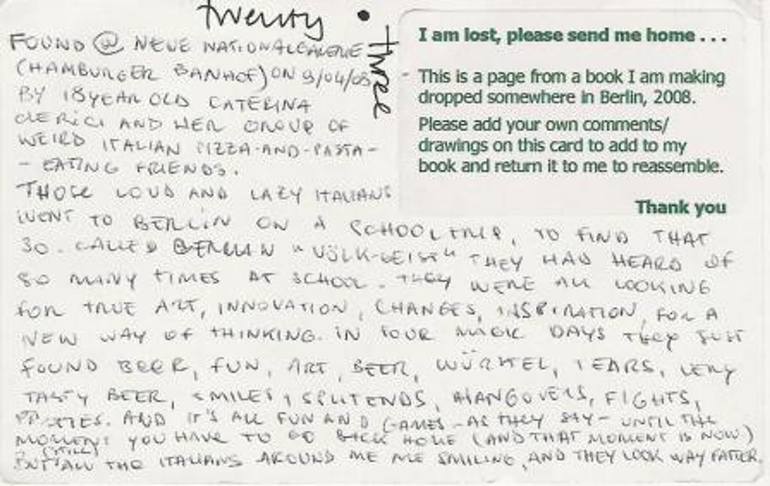 twenty • three
FOUND @ NEUE NATIONALGALERIE
(HAMBURGER BANHOF) ON 9/04/08
BY 18 YEAR OLD CATERINA
CLERICI AND HER GROUP OF
WEIRD ITALIAN PIZZA-AND-PASTA-
- EATING FRIENDS.
THOSE LOUD AND LAZY ITALIANS
WENT TO BERLIN ON A SCHOOLTRIP, TO FIND THAT
SO. CALLED GERMAN "VOLK-GEIST" THEY HAD HEARD OF
SO MANY TIMES AT SCHOOL. THEY WERE ALL LOOKING
FOR TRUE ART, INNOVATION, CHANGES, INSPIRATION, FOR A
NEW WAY OF THINKING. IN FOUR MAGIC DAYS THEY JUST
FOUND BEER, FUN, ART, BEER, WÜRSTEL, TEARS, VERY
TASTY BEER, SMILES, SPLITENDS, HANGOVERS, FIGHTS,
PARTIES. AND IT'S ALL FUN AND GAMES - AS THEY SAY - UNTIL THE
MOMENT YOU HAVE TO GO BACK HOME (AND THAT MOMENT IS NOW)
BUT (STILL) ALL THE ITALIANS AROUND ME ARE SMILING, AND THEY LOOK WAY FATTER.
I am lost, please send me home . . .
This is a page from a book I am making
dropped somewhere in Berlin, 2008.
Please add your own comments/
drawings on this card to add to my
book and return it to me to reassemble.
Thank you